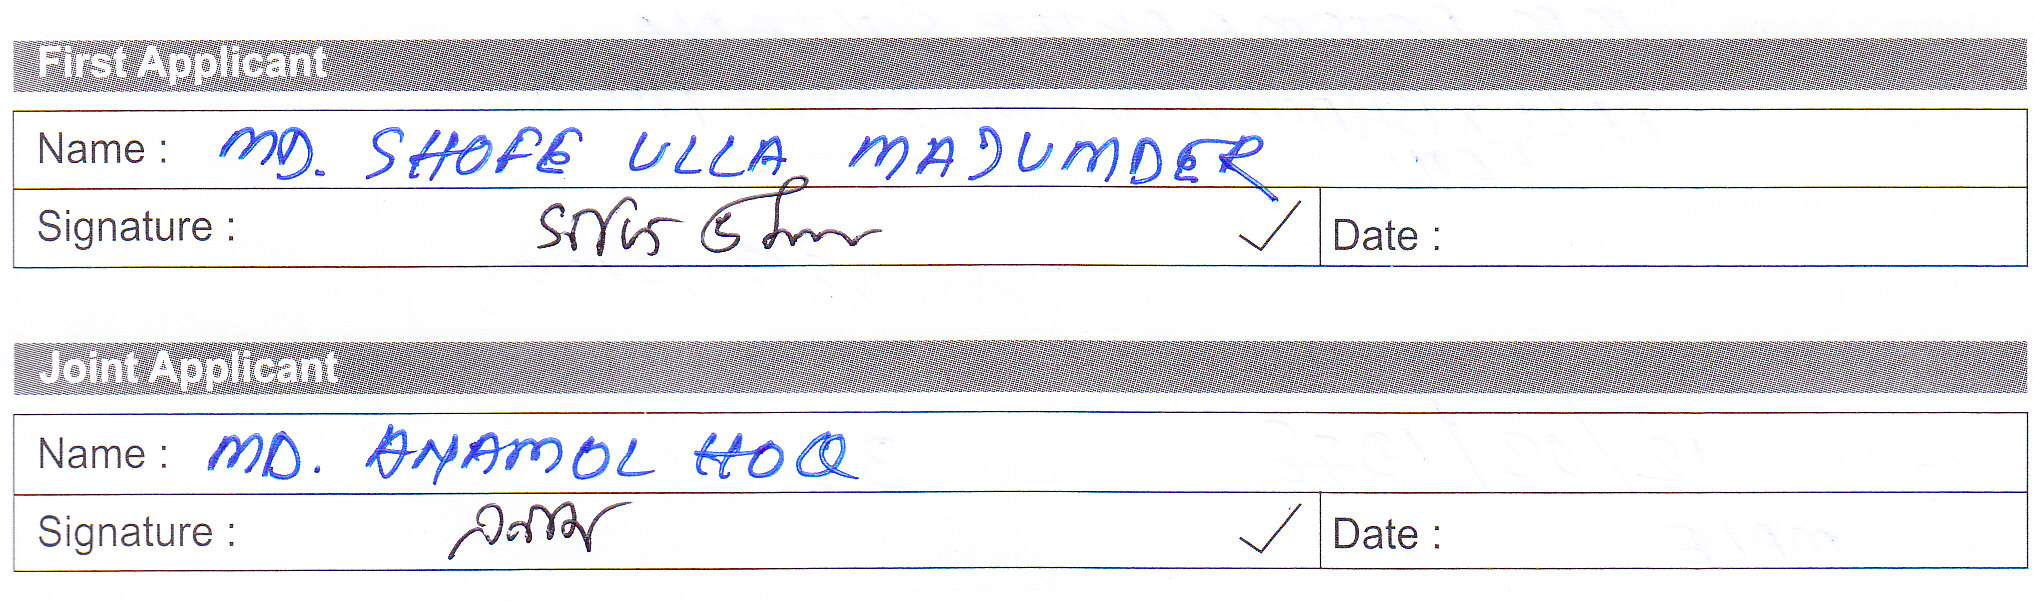 First Applicant
Name : MD. SHOFE ULLA MAJUMDER
Signature :
Date :
Joint Applicant
Name : MD. ANAMOL HOQ
Signature :
Date :